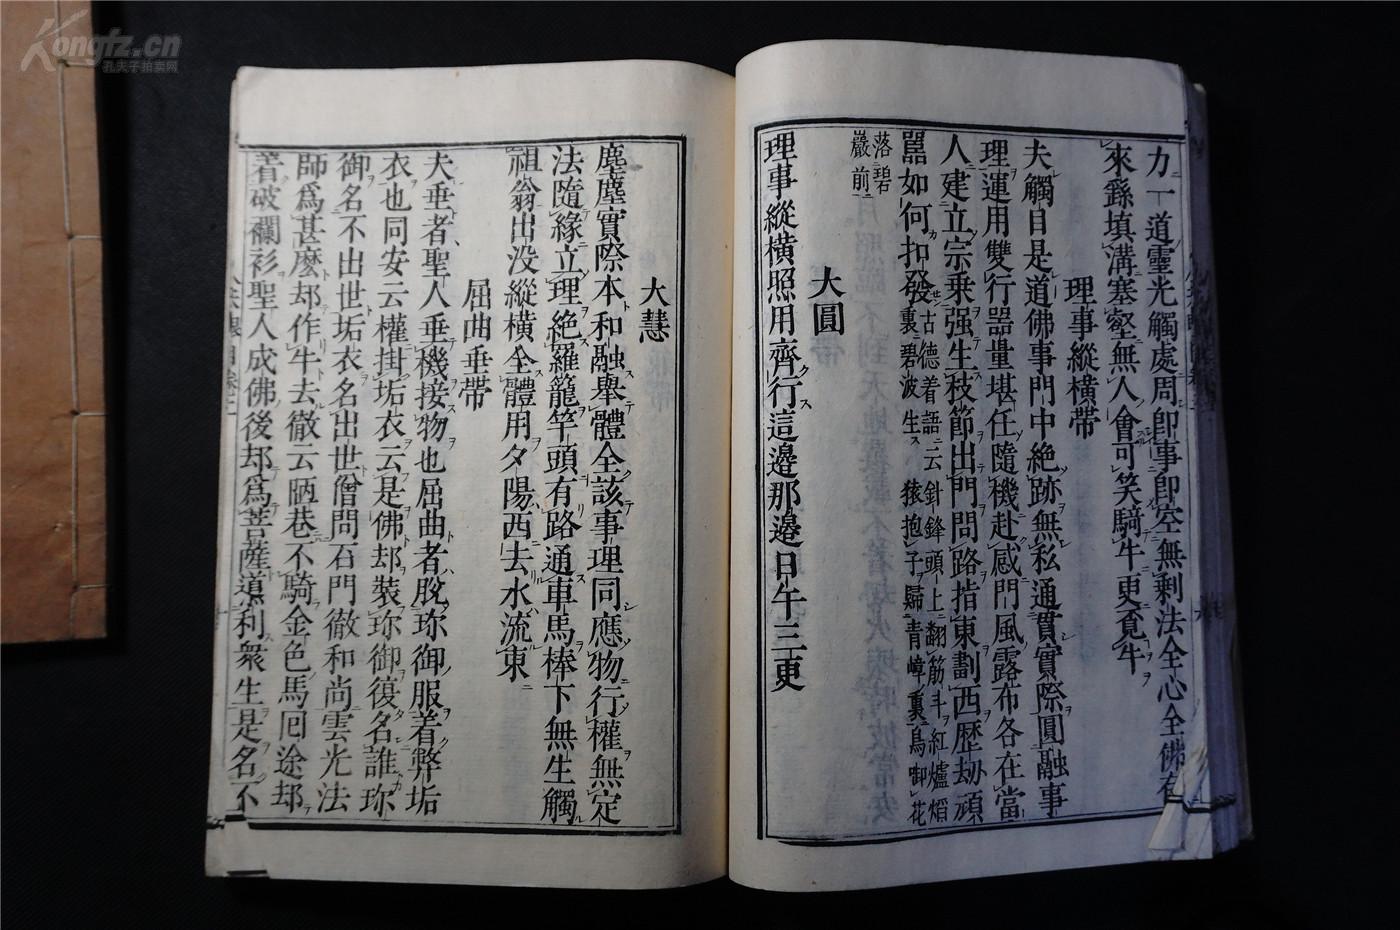 力一道靈光觸處周卽事卽空無剩法全心全佛有
來繇填溝塞壑無人會可笑騎牛更覓牛
理事縱橫帶
夫觸目是道佛事門中絶跡無私通貫實際圓融事
理運用雙行器量堪任隨機赴感門風露布各在當
人建立宗乗强生枝節出門問路指東劃西歷劫頑
嚚如何扣發古德着語云針鋒頭上翻筋斗紅爐熖
裏碧波生猿抱子歸青嶂裏鳥啣花
落碧
巖前
大圓
理事縱橫照用齊行這邊那邊日午三更
大慧
塵塵實際本和融舉體全該事理同應物行權無定
法隨緣立理絶羅籠竿頭有路通車馬棒下無生觸
祖翁出没縱橫全體用夕陽西去水流東
屈曲垂帶
夫垂者聖人垂機接物也屈曲者脫珎御服着弊垢
衣也同安云權掛垢衣云是佛却裝珎御復名誰珎
御名不出世垢衣名出世僧問石門徹和尚雲光法
師爲甚麽却作牛去徹云陋巷不騎金色馬囘途却
着破襴衫聖人成佛後却爲菩薩導利衆生是名不
Kongfz.cn
孔夫子拍卖网